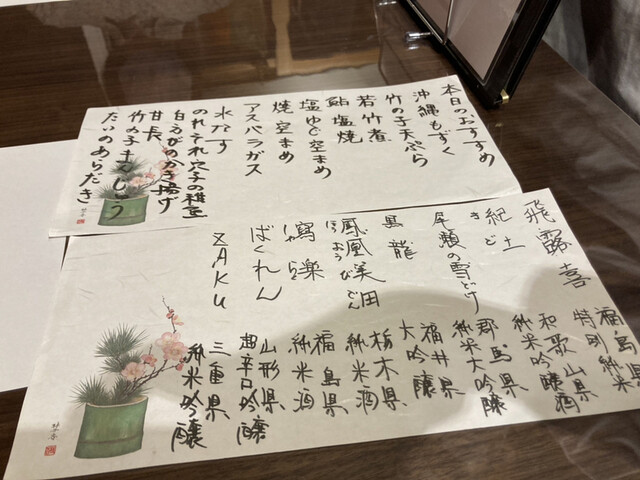 本日のおすすめ
沖縄もずく
竹の子天ぷら
若竹煮
鮎塩焼
塩ゆで空まめ
焼空まめ
アスパラガス
水なす
のれそれ穴子の稚魚
白えびのかき揚げ
甘長
竹の子まんじゅう
たいのあらたき
飛露喜
福島県
特別純米
紀土
きど
和歌山県
純米吟醸酒
尾瀬の雪どけ
群馬県
純米大吟醸
黒龍
福井県
大吟醸
鳳凰美田
ほうおうびでん
栃木県
純米酒
寫楽
しゃらく
福島県
純米酒
ばくれん
山形県
超辛口吟醸
ZAKU
三重県
純米吟醸